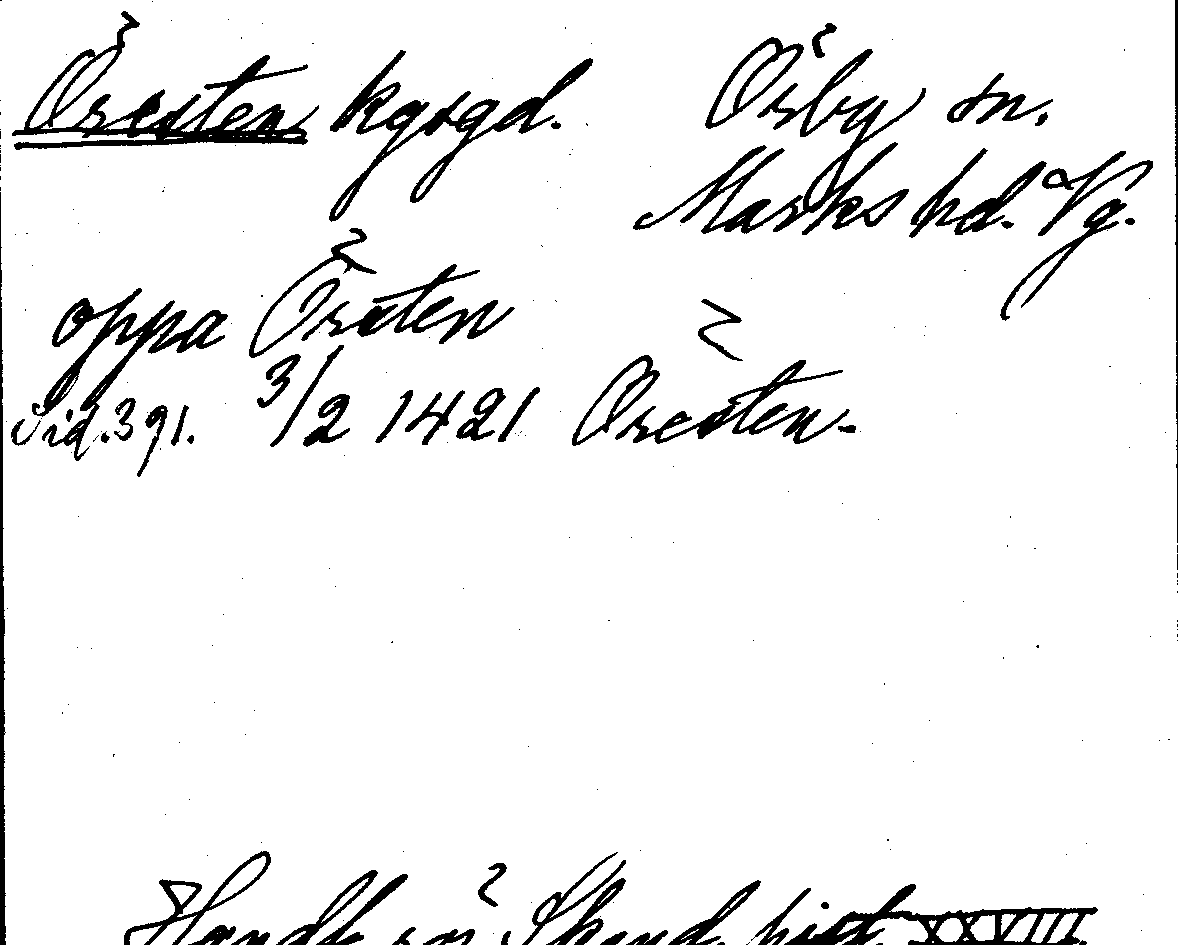 Öresten kgsgd. Örby sn.
Marks hd. Vg.
oppa Örsten
Sid. 391. 3/2 1421 Öresten.
Handl. rör Skand. hist. XXVIII